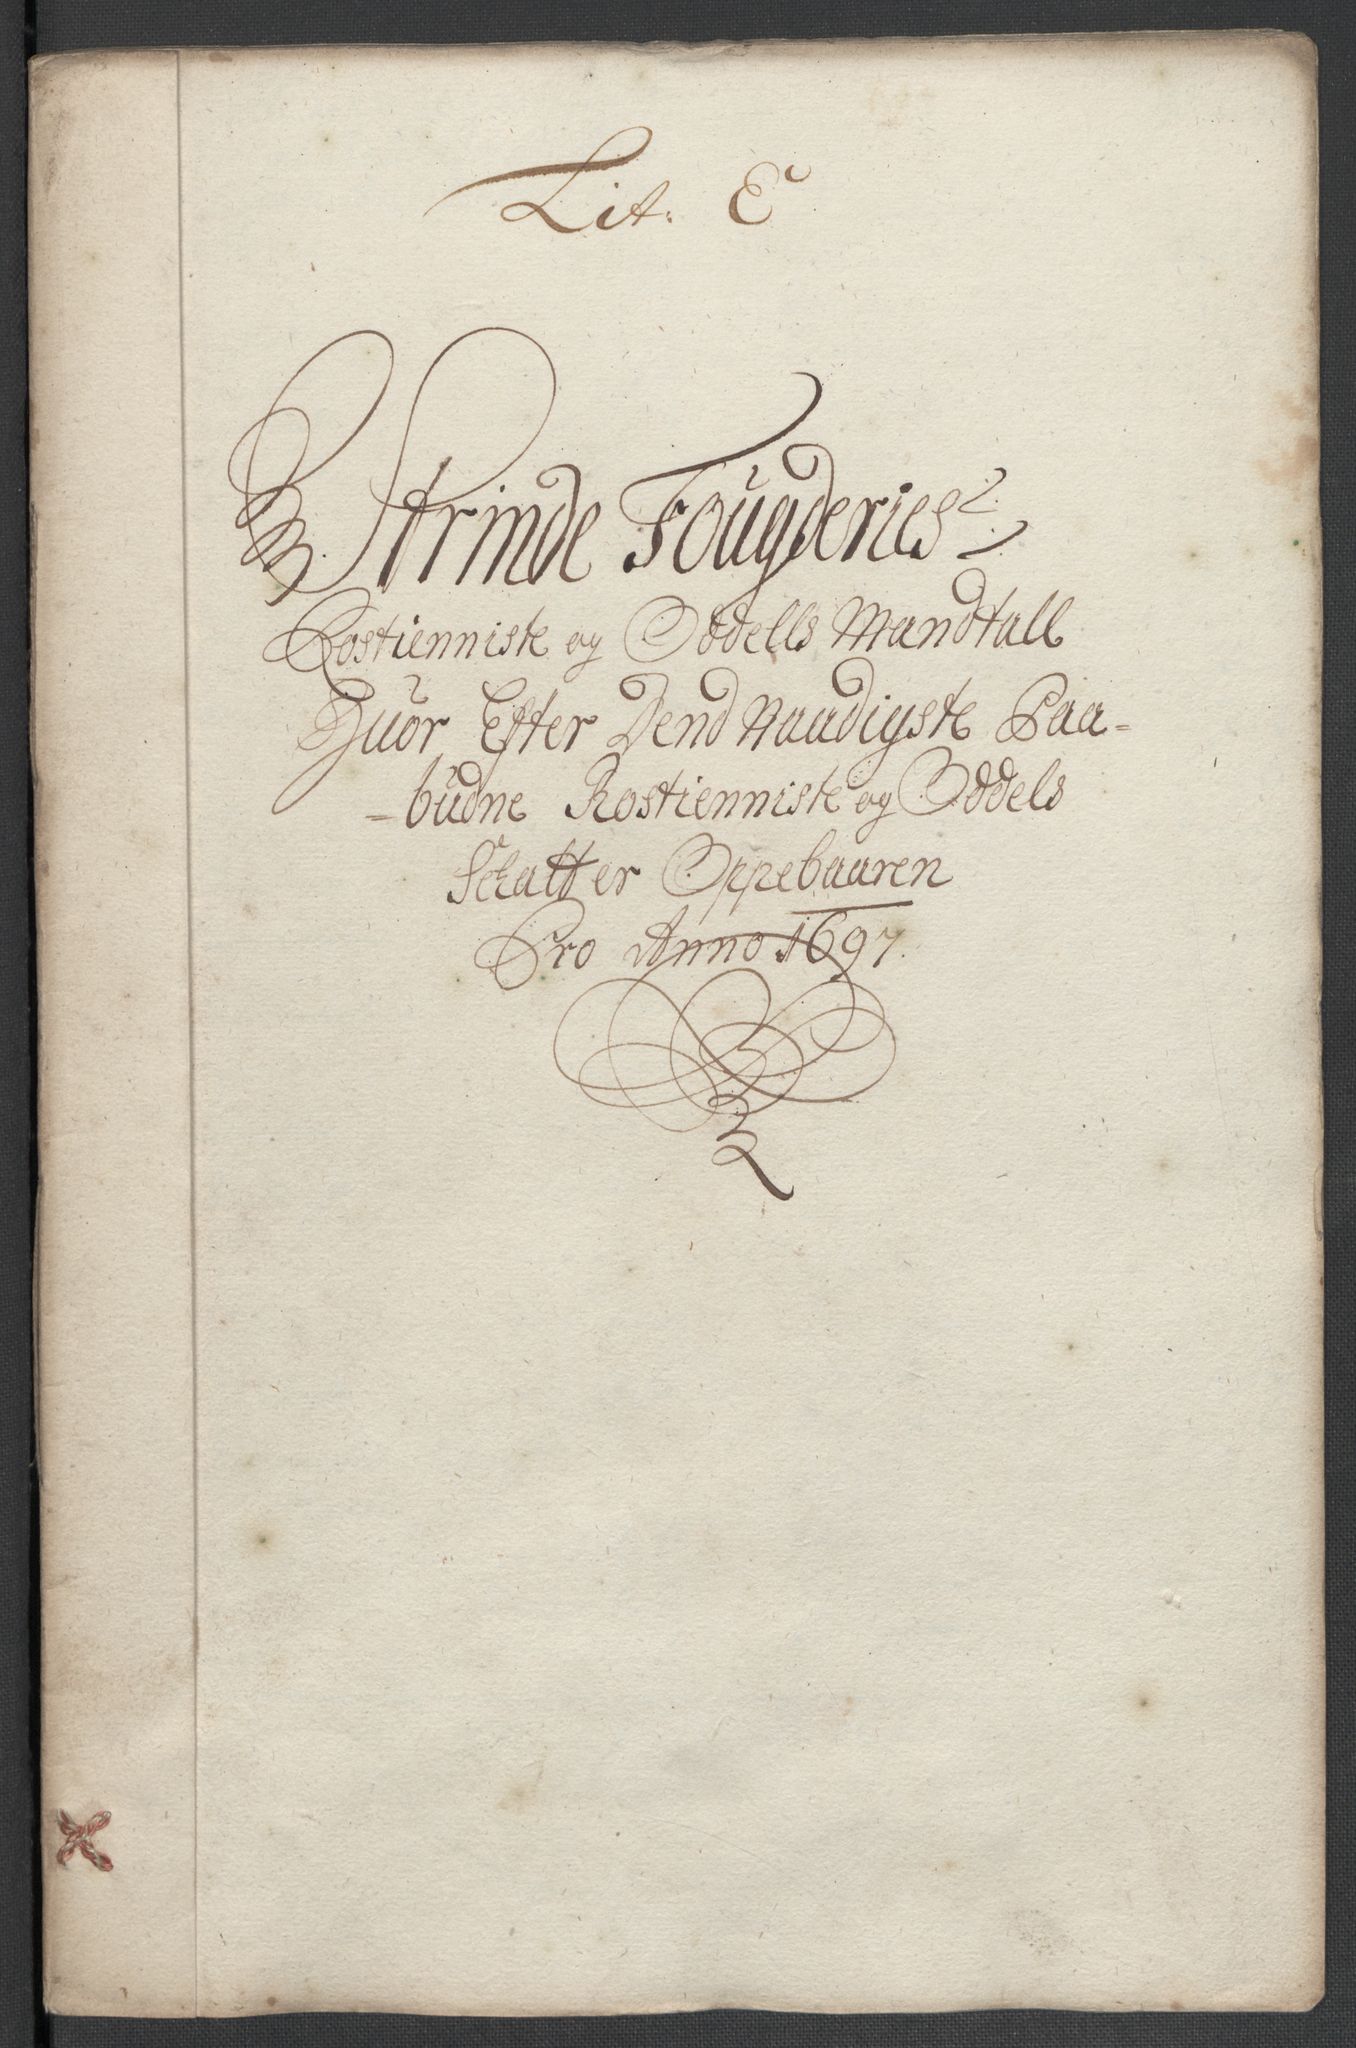 Lit: E
Strinde Fougderies
Rostienniste og Oddells Mandtall
Huor Efter Dend Naadigste Paa=
=budne Rostienniste og Oddels
Schatter Oppebaaren
Pro Anno 1697.